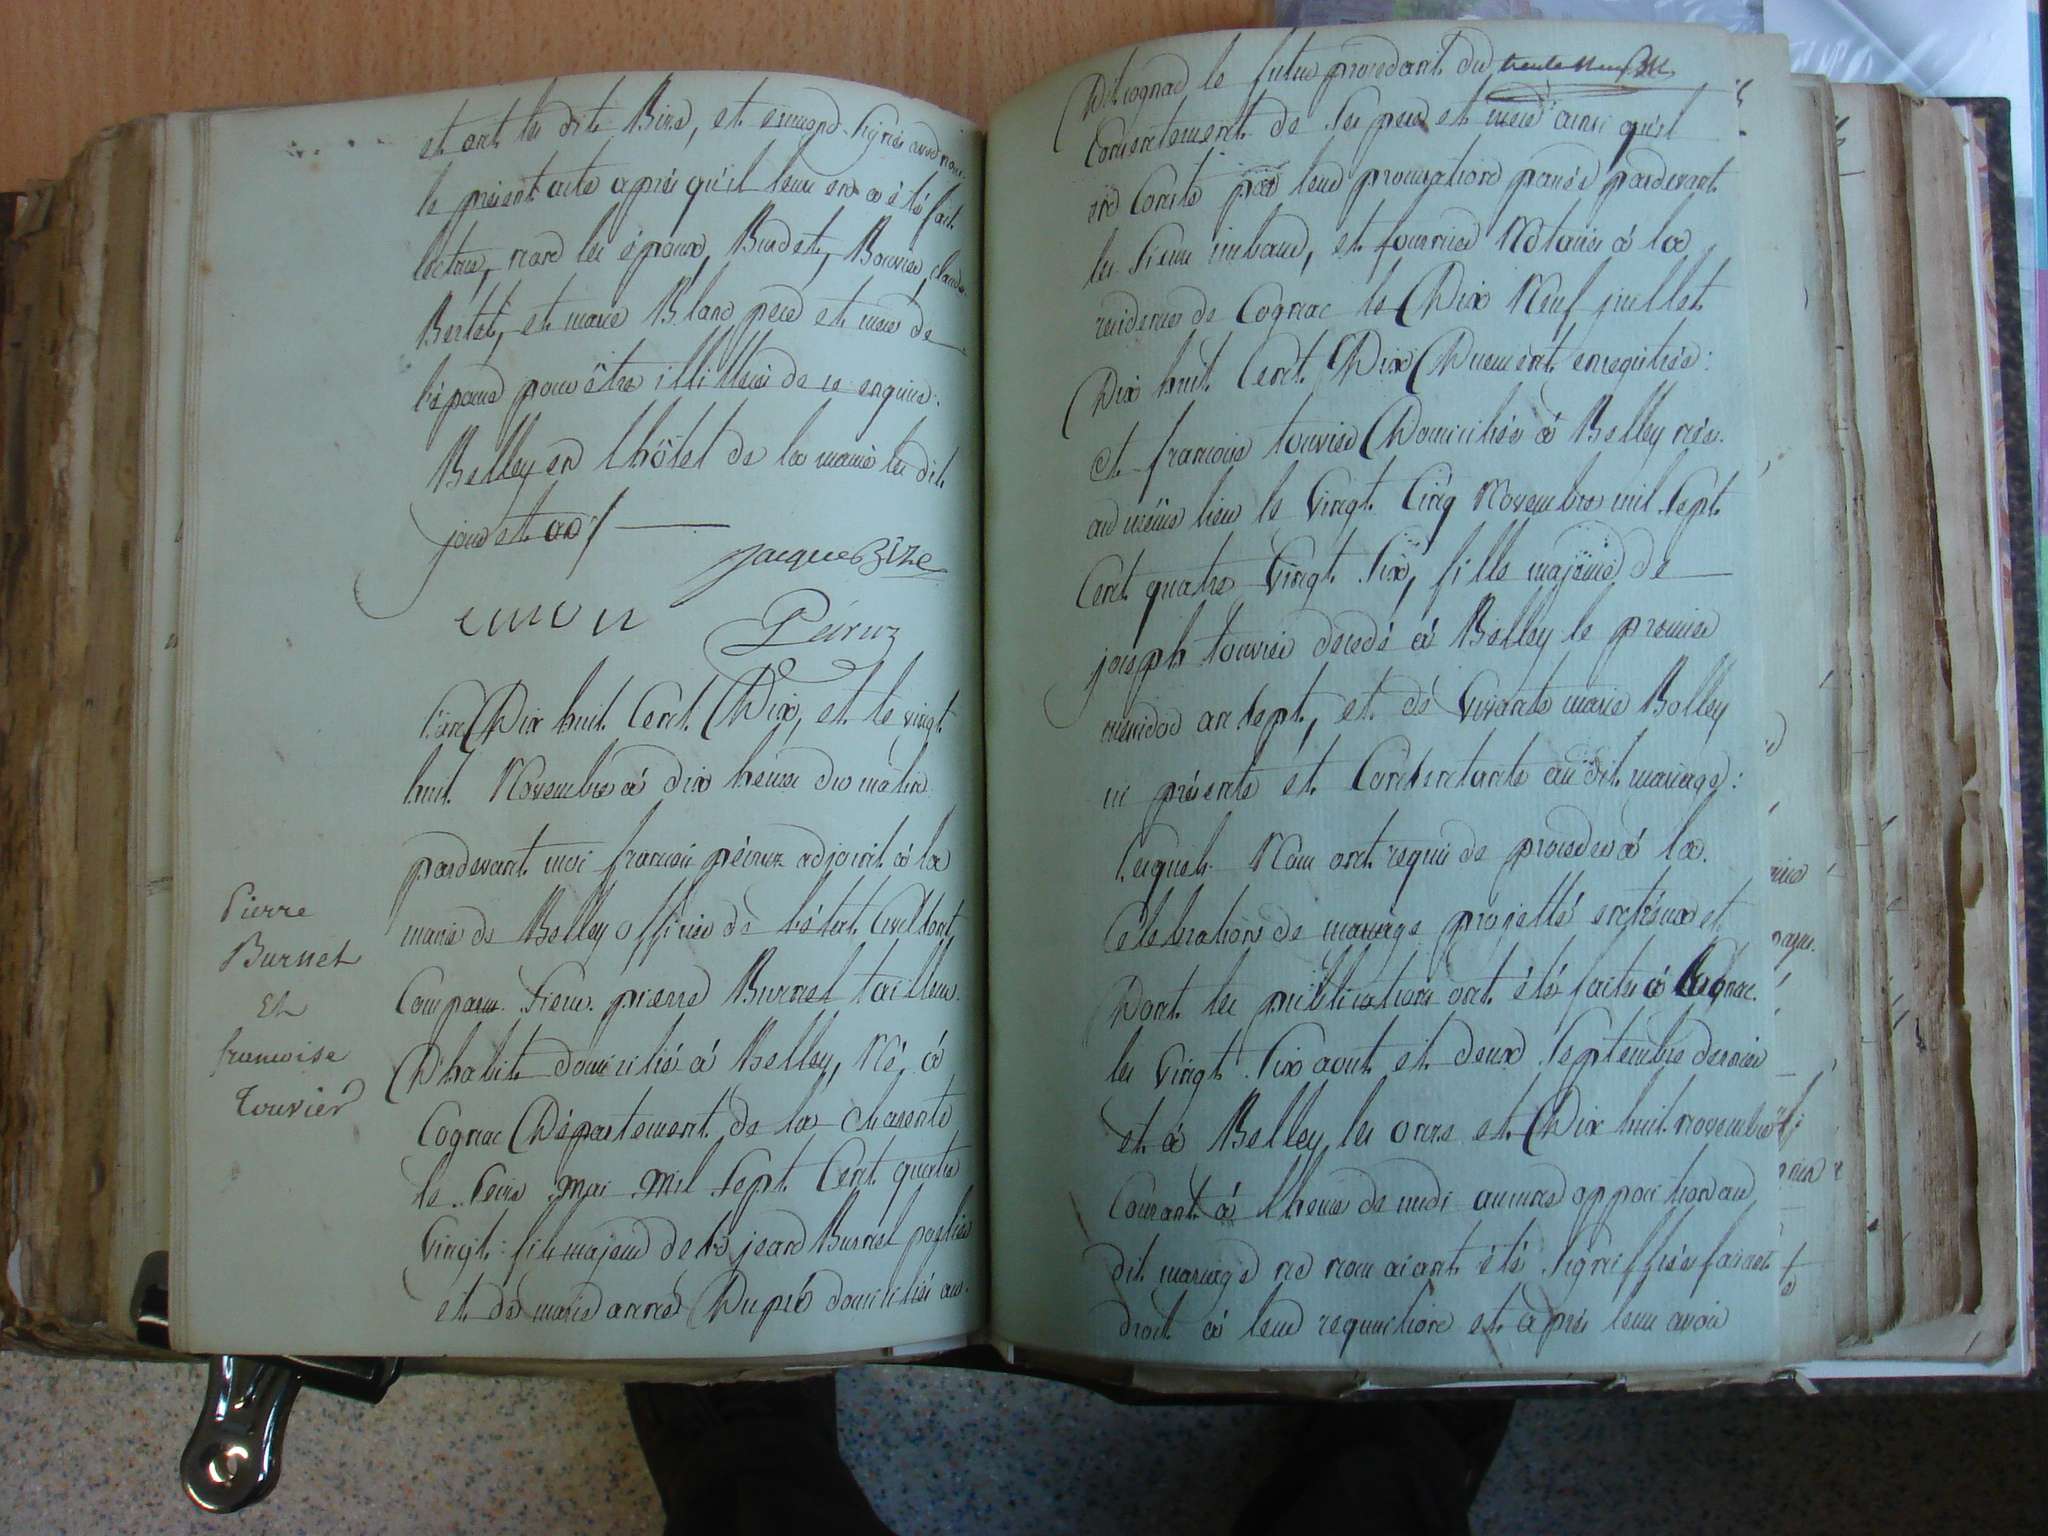 et ont les dits Bize, et Emond signés avec nous
le présent acte après qu'il leur en a été fait
lecture, non les époux, Burdet, Bouvier, claude
Bertet, et marie Blanc père et mere de
l'épouse pour être illittérés de ce enquis.
Belley en l'hôtel de la mairie les dit.
jour et an /
jacque Bize
emon
Péiruz
l'an Dix huit Cent Dix, et le vingt
huit Novembre à dix heures du matin
pardevant moi francois péiruz adjoint à la
mairie de Belley officier de l'état Civil sont
Comparus sieur pierre Burnet tailleur
D'habits domicilié à Belley, Né à
Cognac Département de la charente
le seize mai mil sept Cent quatre
Vingt : fils majeur de jean Burnet
et de marie anne Dupré domiciliés au
Pierre
Burnet
Et
francoise
Touvier
Dit cognac le futur procedant du
Consentement de ses pere et mere ainsi qu'il
en Conste par leur procuration passée pardevant
les sieurs imbaud, et fournier Notaires à la
residence de Cognac le Dix Neuf juillet
Dix huit Cent Dix Duement enregistrée :
et francoise touvier Domiciliée à Belley née
au même lieu le Vingt Cinq Novembre mil sept
Cent quatre Vingt Six, fille majeure de
joseph touvier decedé à Belley le premier
messidor an sept, et de Vivante marie Bolley
ici présente et Consentante au dit mariage :
lesquels Nous ont requis de proceder à la
Célébration de mariage projetté entr'eux et
Dont les publications ont étés faites à Cognac
les Vingt Six aout et deux Septembre dernier
et à Belley les onze et Dix huit novembre
Courant à l'heure de midi aucune opposition au
dit mariage ne nous aiant été signiffiée faisant
droit à leur requisition et après leur avoir